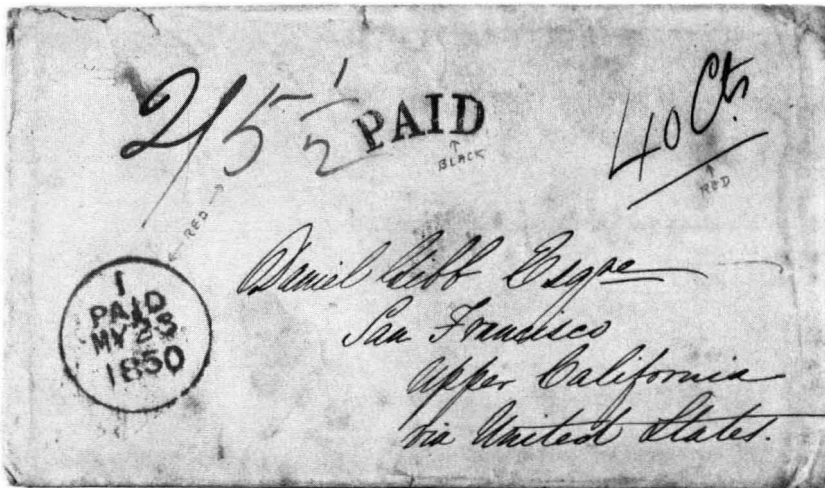 2/5 1/2 PAID
BLACK
40 Cts
RED
RED
1
PAID
MY 23
1850
Daniel Gibb Esqre
San Francisco
Upper California
via United States.